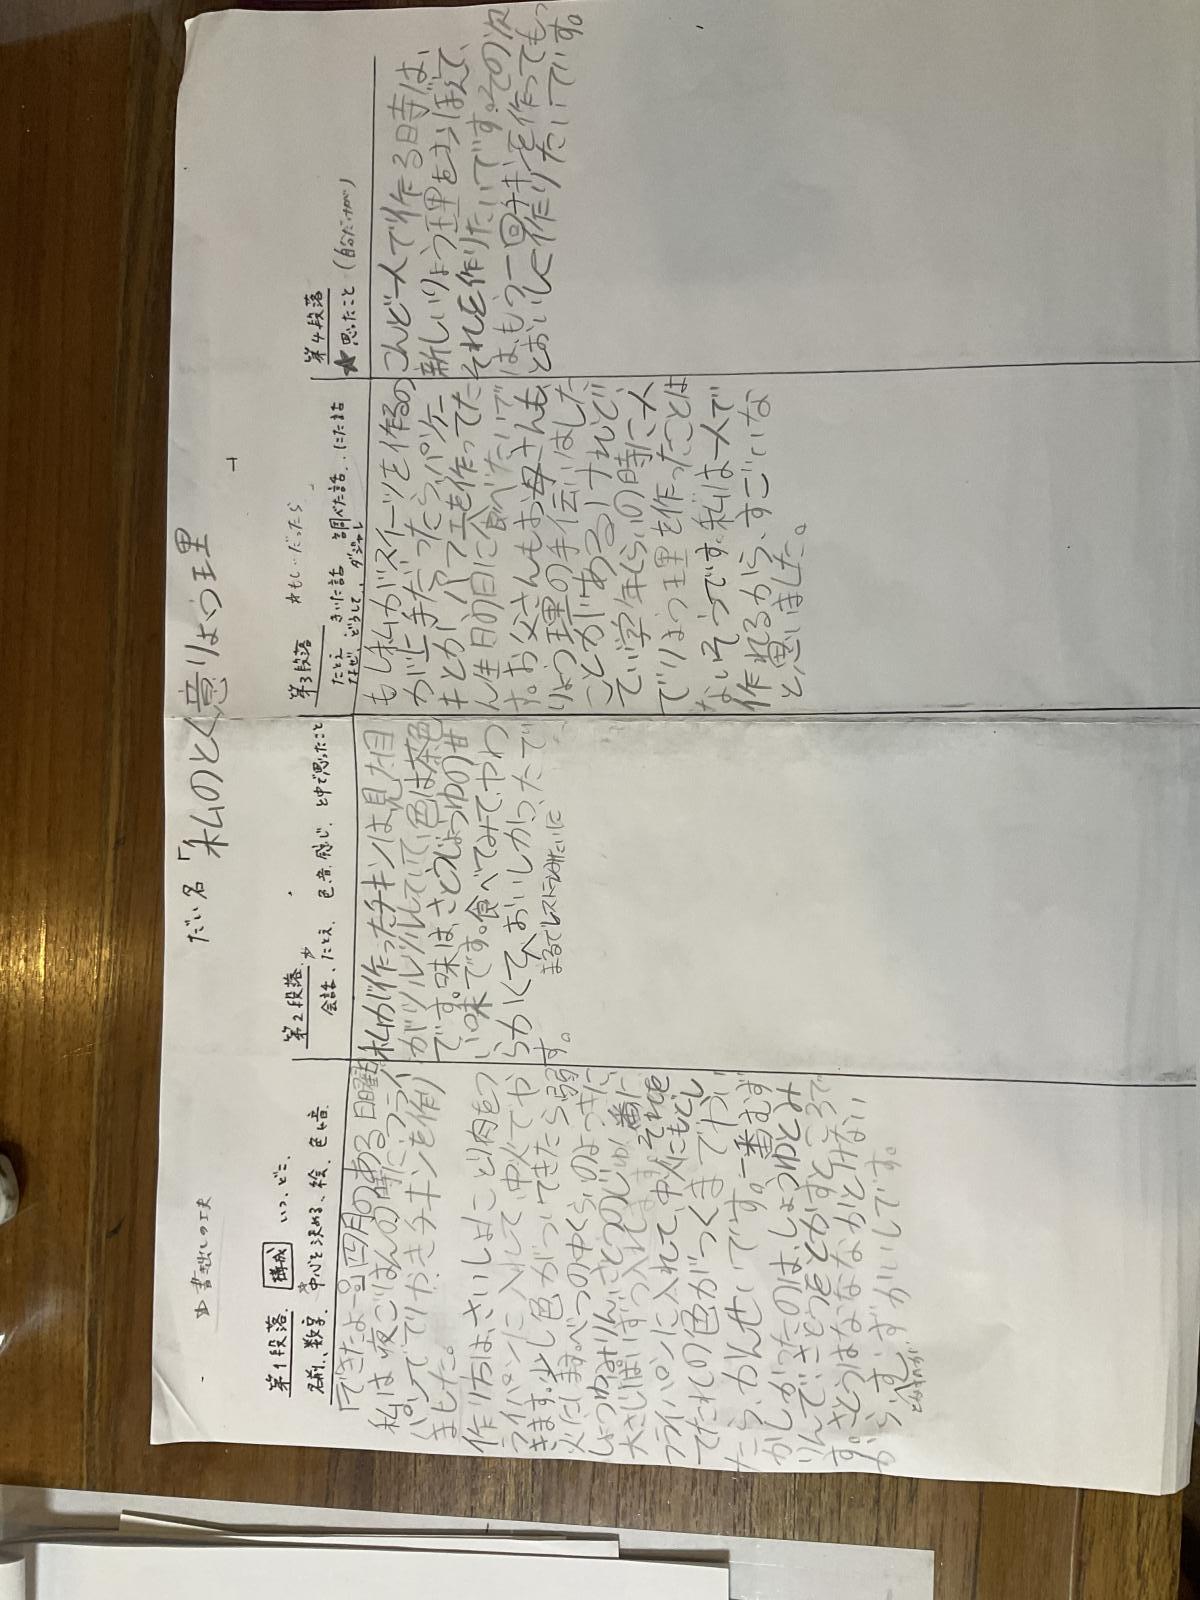 だい名「私のとく意りょう理
書き出しの工夫
第1段落 構成 いつ、どこ、
名前、数字、中心を決める、絵、色、音
「できたよー。」四月のある日曜日
私は夜ごはんの時にフライ
パンでてりやきチキンを作り
ました。
作り方は、さいしょにとり肉をフ
ライパンに入れして中火でや
きます。少し色がついてきたら弱
火にします。べつの中くらいのようきに
しょうゆ、みりん、さとうのじゅん番に
大さじ一ぱいずつ入れます。それを
フライパンに入れて、中火にもどし
てたれの色がつくまでやい
たら、かんせいです。一番むず
かしかったのは、しょうゆとみ
りんでさとうをとかすところで
す。さとうはなかなかとけない
からすごいむずかしいです。
第2段落
会話、たとえ、色、音、感じ、と中で思ったこと
私が作ったチキンは見た目
がツルツルしていて、色は茶色
です。味は、さとうじょうゆの甘
い味です。食べてみて、やわ
らかくて、おいしかったで
す。
まるでレストランみたいに
第3段落 もし…だったら
たとえ、きいた話、調べた話、にた話
なぜ、どうして、ダジャレ
もし私がスイーツを作るの
が上手だったら、パンケー
キとか、パフェを作ってた
ん生日の日に食べたいで
す。お父さんもお母さんも、
りょう理の手伝いはした
ことがあるけれど、
てい学年くらいの時に一人
でりょう理を作ったことは
ないそうです。私は一人で
作れるから、すごいな
と思いました。
第4段落
思ったこと(自分だけが)
こんど一人で作る時は、
新しいりょう理をおぼえて、
それを作りたいです。その次
は、もう一回チキンを作ってもっ
とおいしく作りたいです。